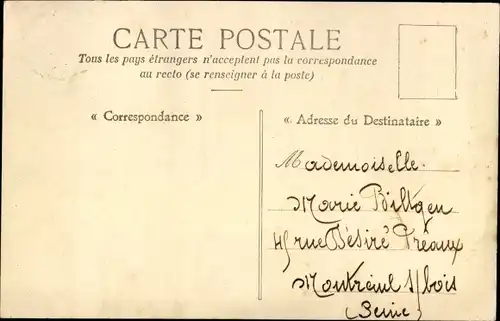 CARTE POSTALE
Tous les pays étrangers n'acceptent pas la correspondance
au recto (se renseigner à la poste)
« Correspondance »
« Adresse du Destinataire »
Mademoiselle
Marie Biltgen
45 rue Désiré Préaux
Montreuil s/ bois
(Seine)